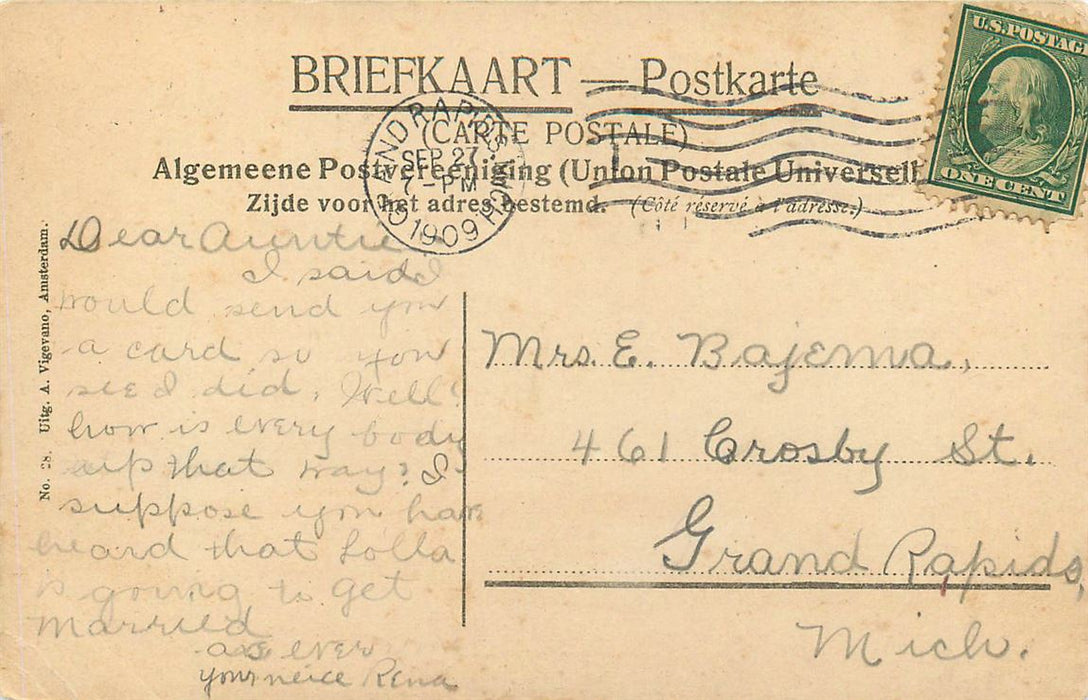 BRIEFKAART — Postkarte
(CARTE POSTALE)
Algemeene Postvereeniging (Union Postale Universelle
Zijde voor het adres bestemd. (Côté réservé à l'adresse.)
GRAND RAPIDS MICH
SEP 27
7-PM
1909
U.S. POSTAGE
ONE CENT
No. 28. Uitg. A. Vigevano, Amsterdam.
Dear Auntie
I said I
would send you
a card so you
see I did. Well!
how is every body
up that way? I
suppose you have
heard that Lolla
is going to get
married
as ever
your neice Rena
Mrs. E. Bajema,
461 Crosby St.
Grand Rapids,
Mich.